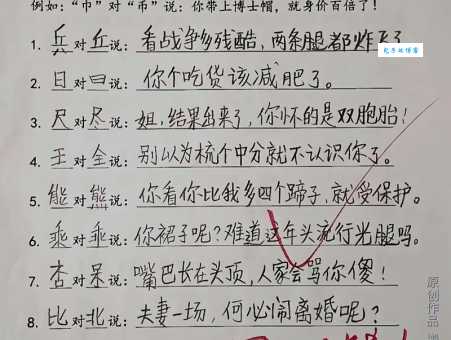 例如："巾"对"币"说：你带上博士帽，就身价百倍了！
1. 兵对丘说：看战争多残酷，两条腿都炸
2. 日对曰说：你个吃货该减肥了。
3. 尺对尽说：姐，结果出来了，你怀的是双胞胎！
4. 王对全说：别以为梳个中分就不认识你了。
5. 能对熊说：你看你比我多四个蹄子，就受保护。
6. 乘对乖说：你裙子呢？难道这年头流行光腿吗。
7. 杏对呆说：嘴巴长在头顶，人家会骂你傻！
8. 比对北说：夫妻一场，何必闹离婚呢？
原创作品